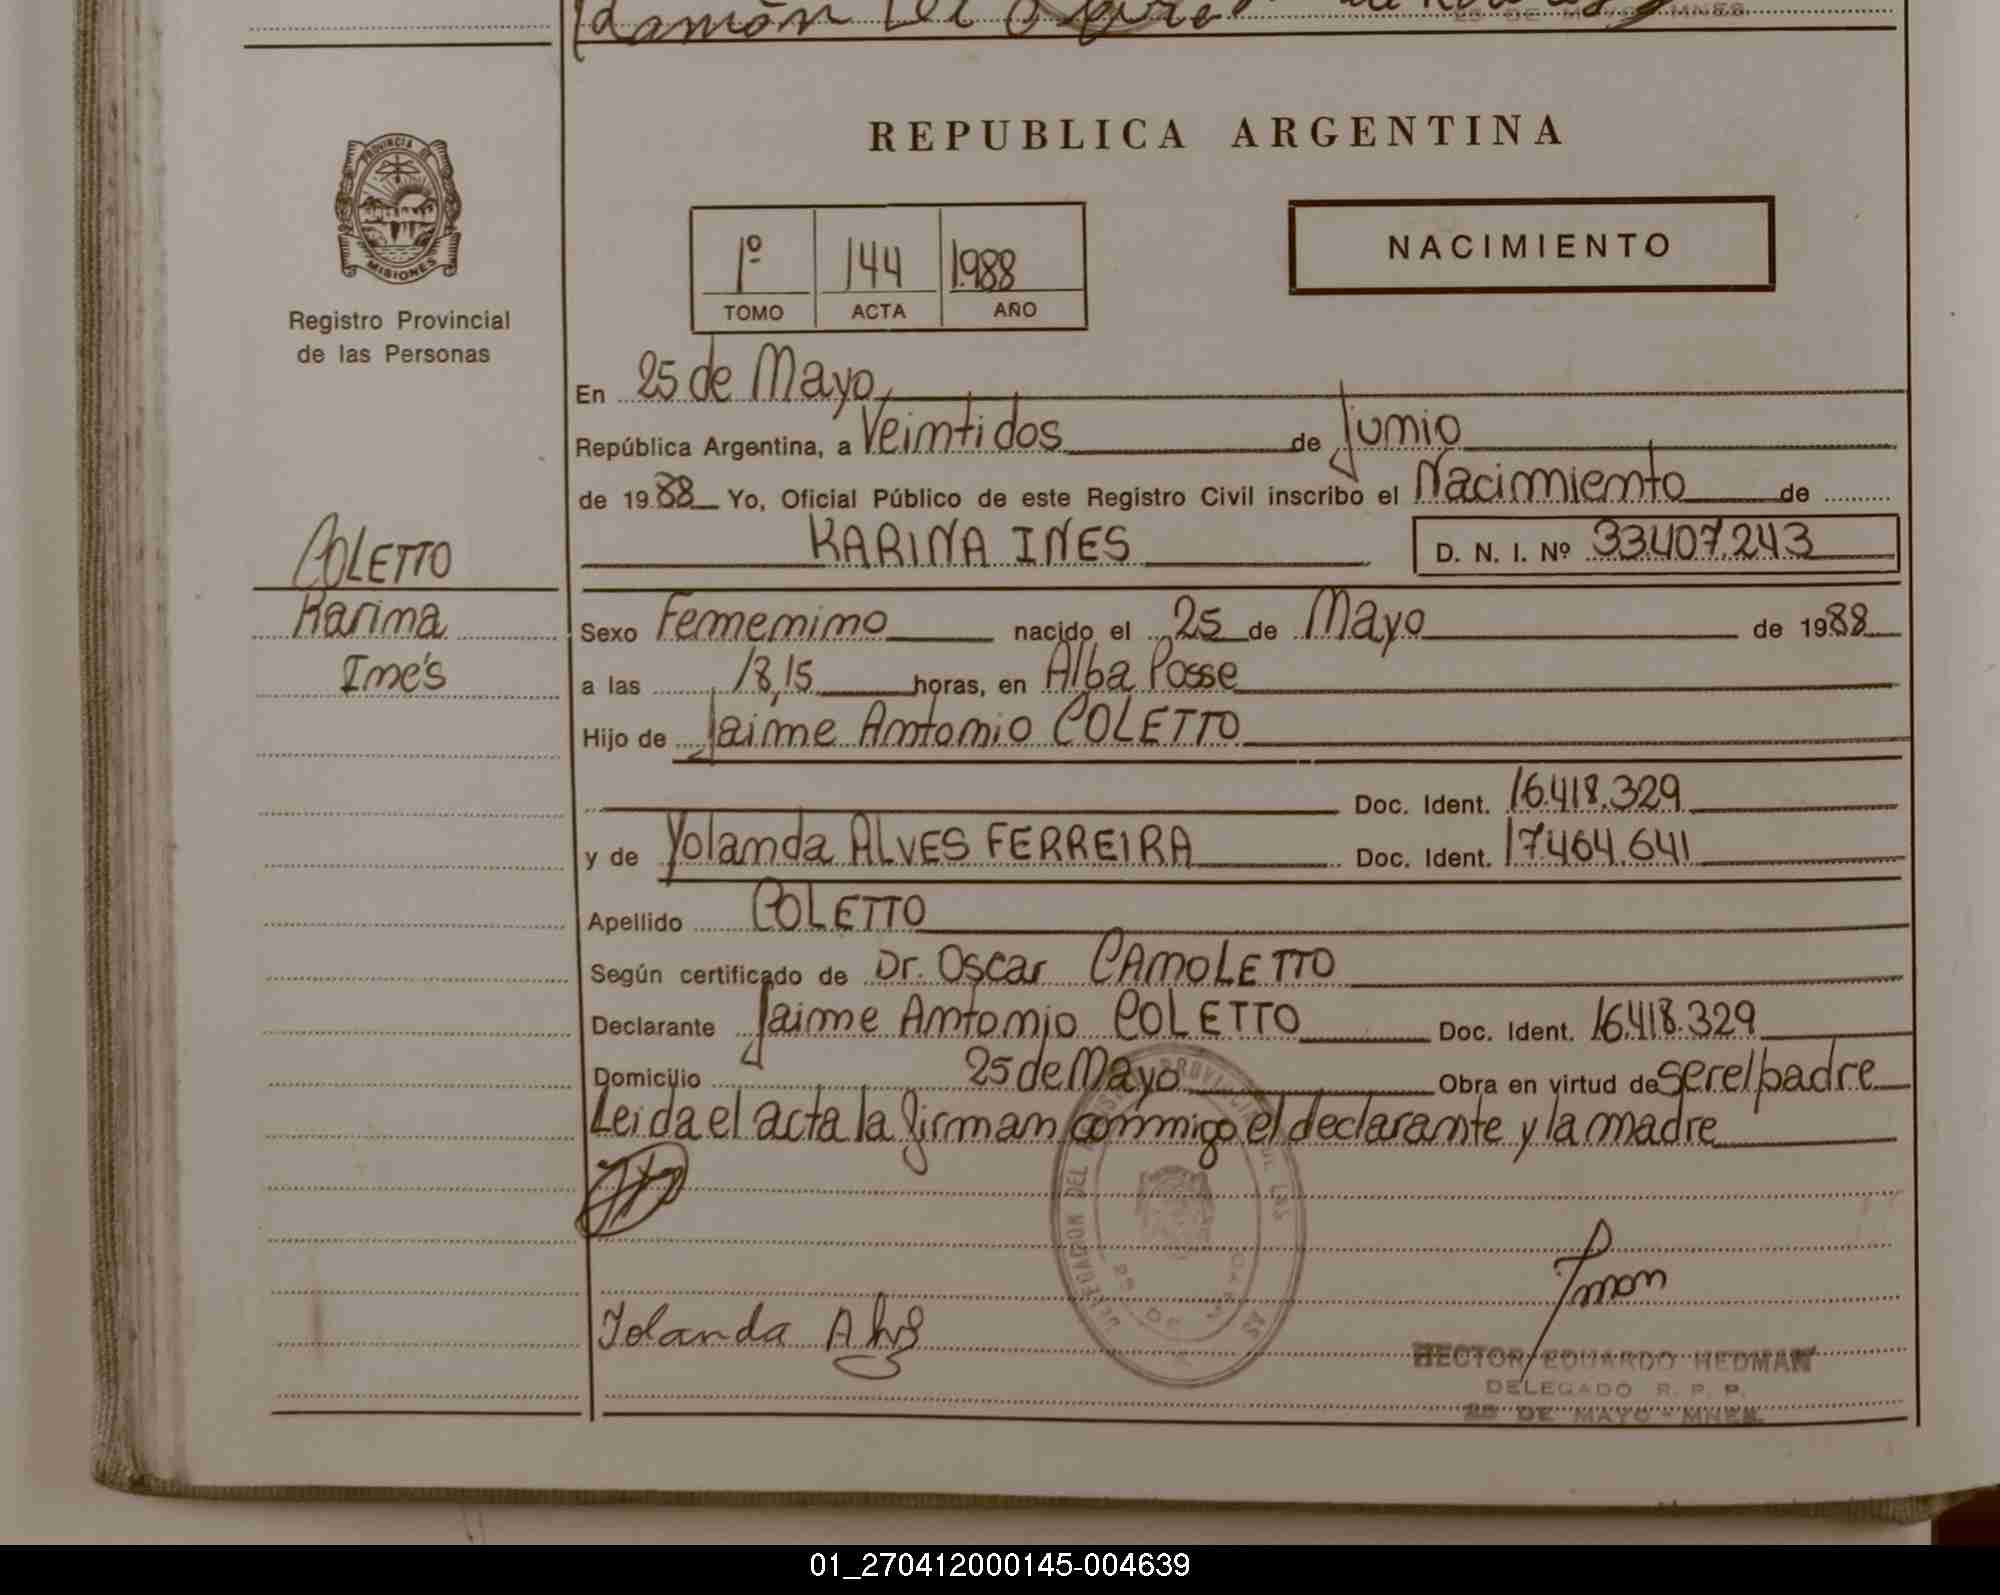 Ramón
25 DE MAYO - MNES
REPUBLICA ARGENTINA
PROVINCIA DE
MISIONES
Registro Provincial
de las Personas
1º 144 1.988
TOMO ACTA AÑO
NACIMIENTO
En 25 de Mayo,
República Argentina, a Veintidos de Junio
de 1988 Yo, Oficial Público de este Registro Civil inscribo el Nacimiento de
KARINA INES D. N. I. Nº 33.407.243
COLETTO
Karina
Inés
Sexo Femenino nacido el 25 de Mayo de 1988
a las 18,15 horas, en Alba Posse
Hijo de Jaime Antonio COLETTO
Doc. Ident. 16.418.329
y de Yolanda ALVES FERREIRA Doc. Ident. 17.464.641
Apellido COLETTO
Según certificado de Dr. Oscar CAMOLETTO
Declarante Jaime Antonio COLETTO Doc. Ident. 16.418.329
Domicilio 25 de Mayo Obra en virtud de ser el padre
Leida el acta la firman conmigo el declarante y la madre
Yolanda
HECTOR EDUARDO HEDMAN
DELEGADO R. P. P.
25 DE MAYO - MNES.
01_270412000145-004639